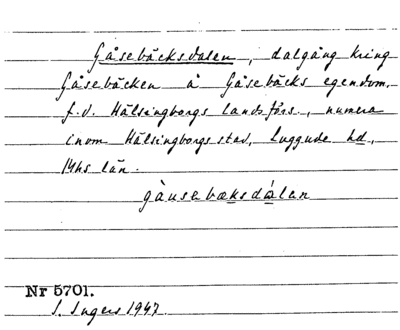 Gåsebäcksdalen, dalgång kring
Gåsebäcken å Gåsebäcks egendom,
f.d. Hälsingborgs landsförs., numera
inom Hälsingborgs stad, Luggude hd,
Mhs län.
gàusebæksdálan
Nr 5701.
I. Ingers 1947.